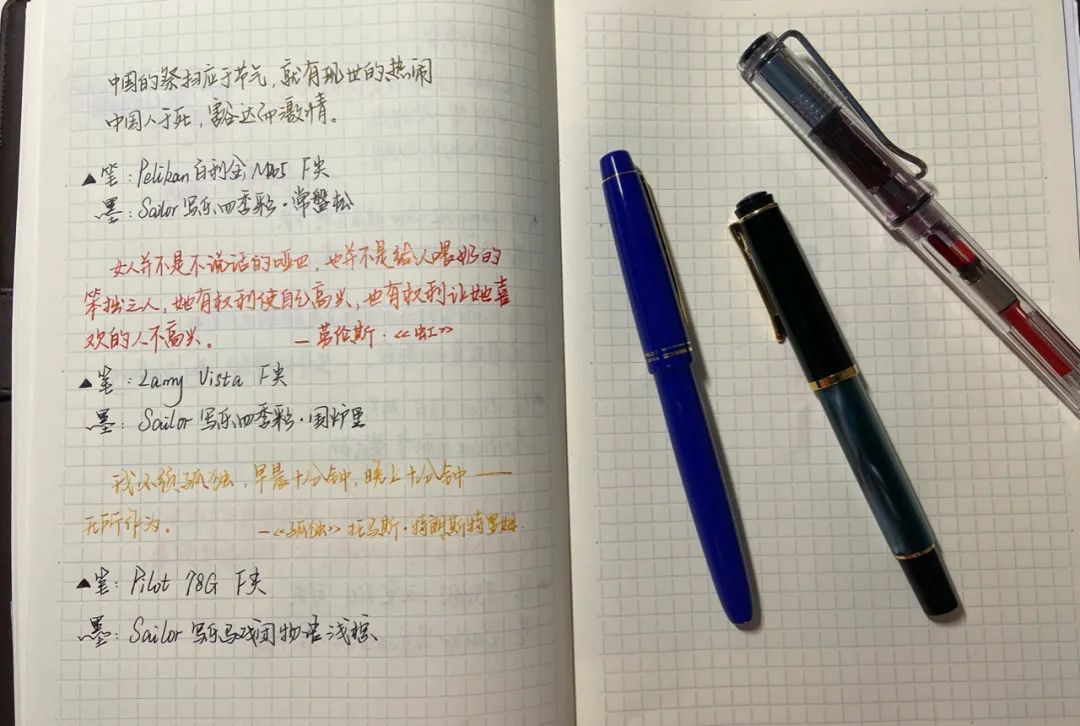 中国的祭扫应于节气，就有现世的热闹
中国人于死，豁达而激情。
▲笔：Pelikan百利金 F尖
墨：Sailor写乐四季彩·常盤松
女人并不是不说话的哑巴，也并不是给人喂奶的
笨拙之人，她有权利使自己高兴，也有权利让她喜
欢的人不高兴。 —劳伦斯·《虹》
▲笔：Lamy Vista F尖
墨：Sailor写乐四季彩·囲炉里
我必须孤独，早晨十分钟，晚上十分钟——
无所作为。 —《孤独》托马斯·特朗斯特罗姆
▲笔：Pilot 78G F尖
墨：Sailor写乐 物语浅棕